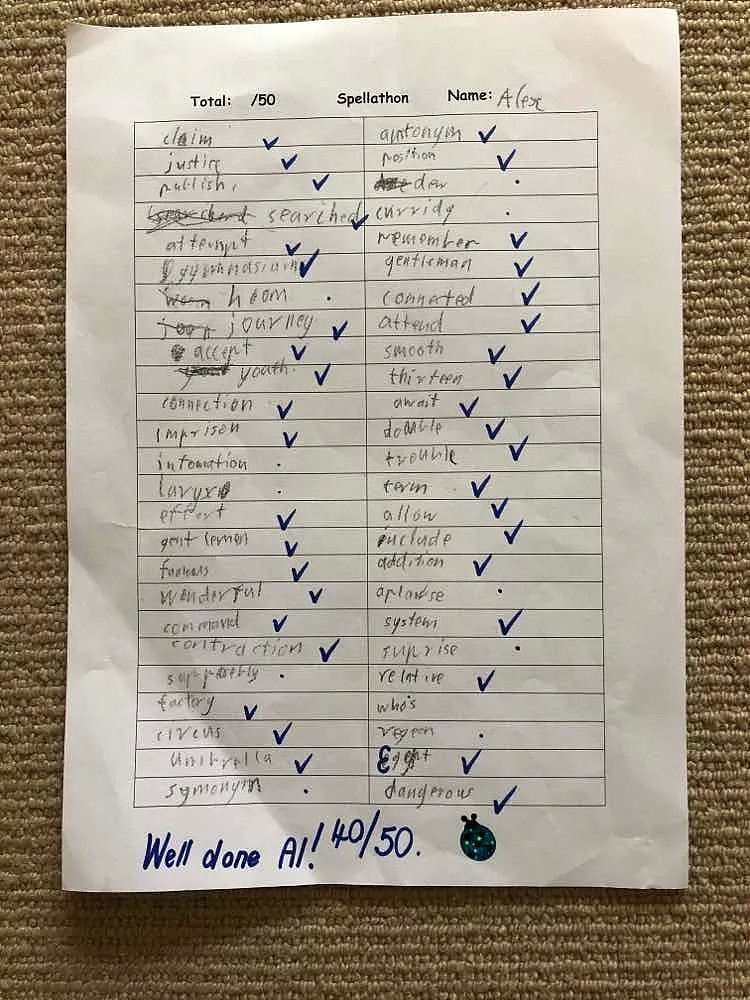 Total: /50 Spellathon Name: Alex
claim antonym
justice position
publish, den
searched curridg
attempt remember
gymnasium gentleman
hoom connected
journey attend
accept smooth
youth. thirteen
connection await
imprison double
intomation trouble
larux term
effort allow
gentlemen include
famous addition
wonderful aplawse
command system
contraction suprise
relative
factory who's
circus
umbrella
symonym dangerous
Well done Al! 40/50.